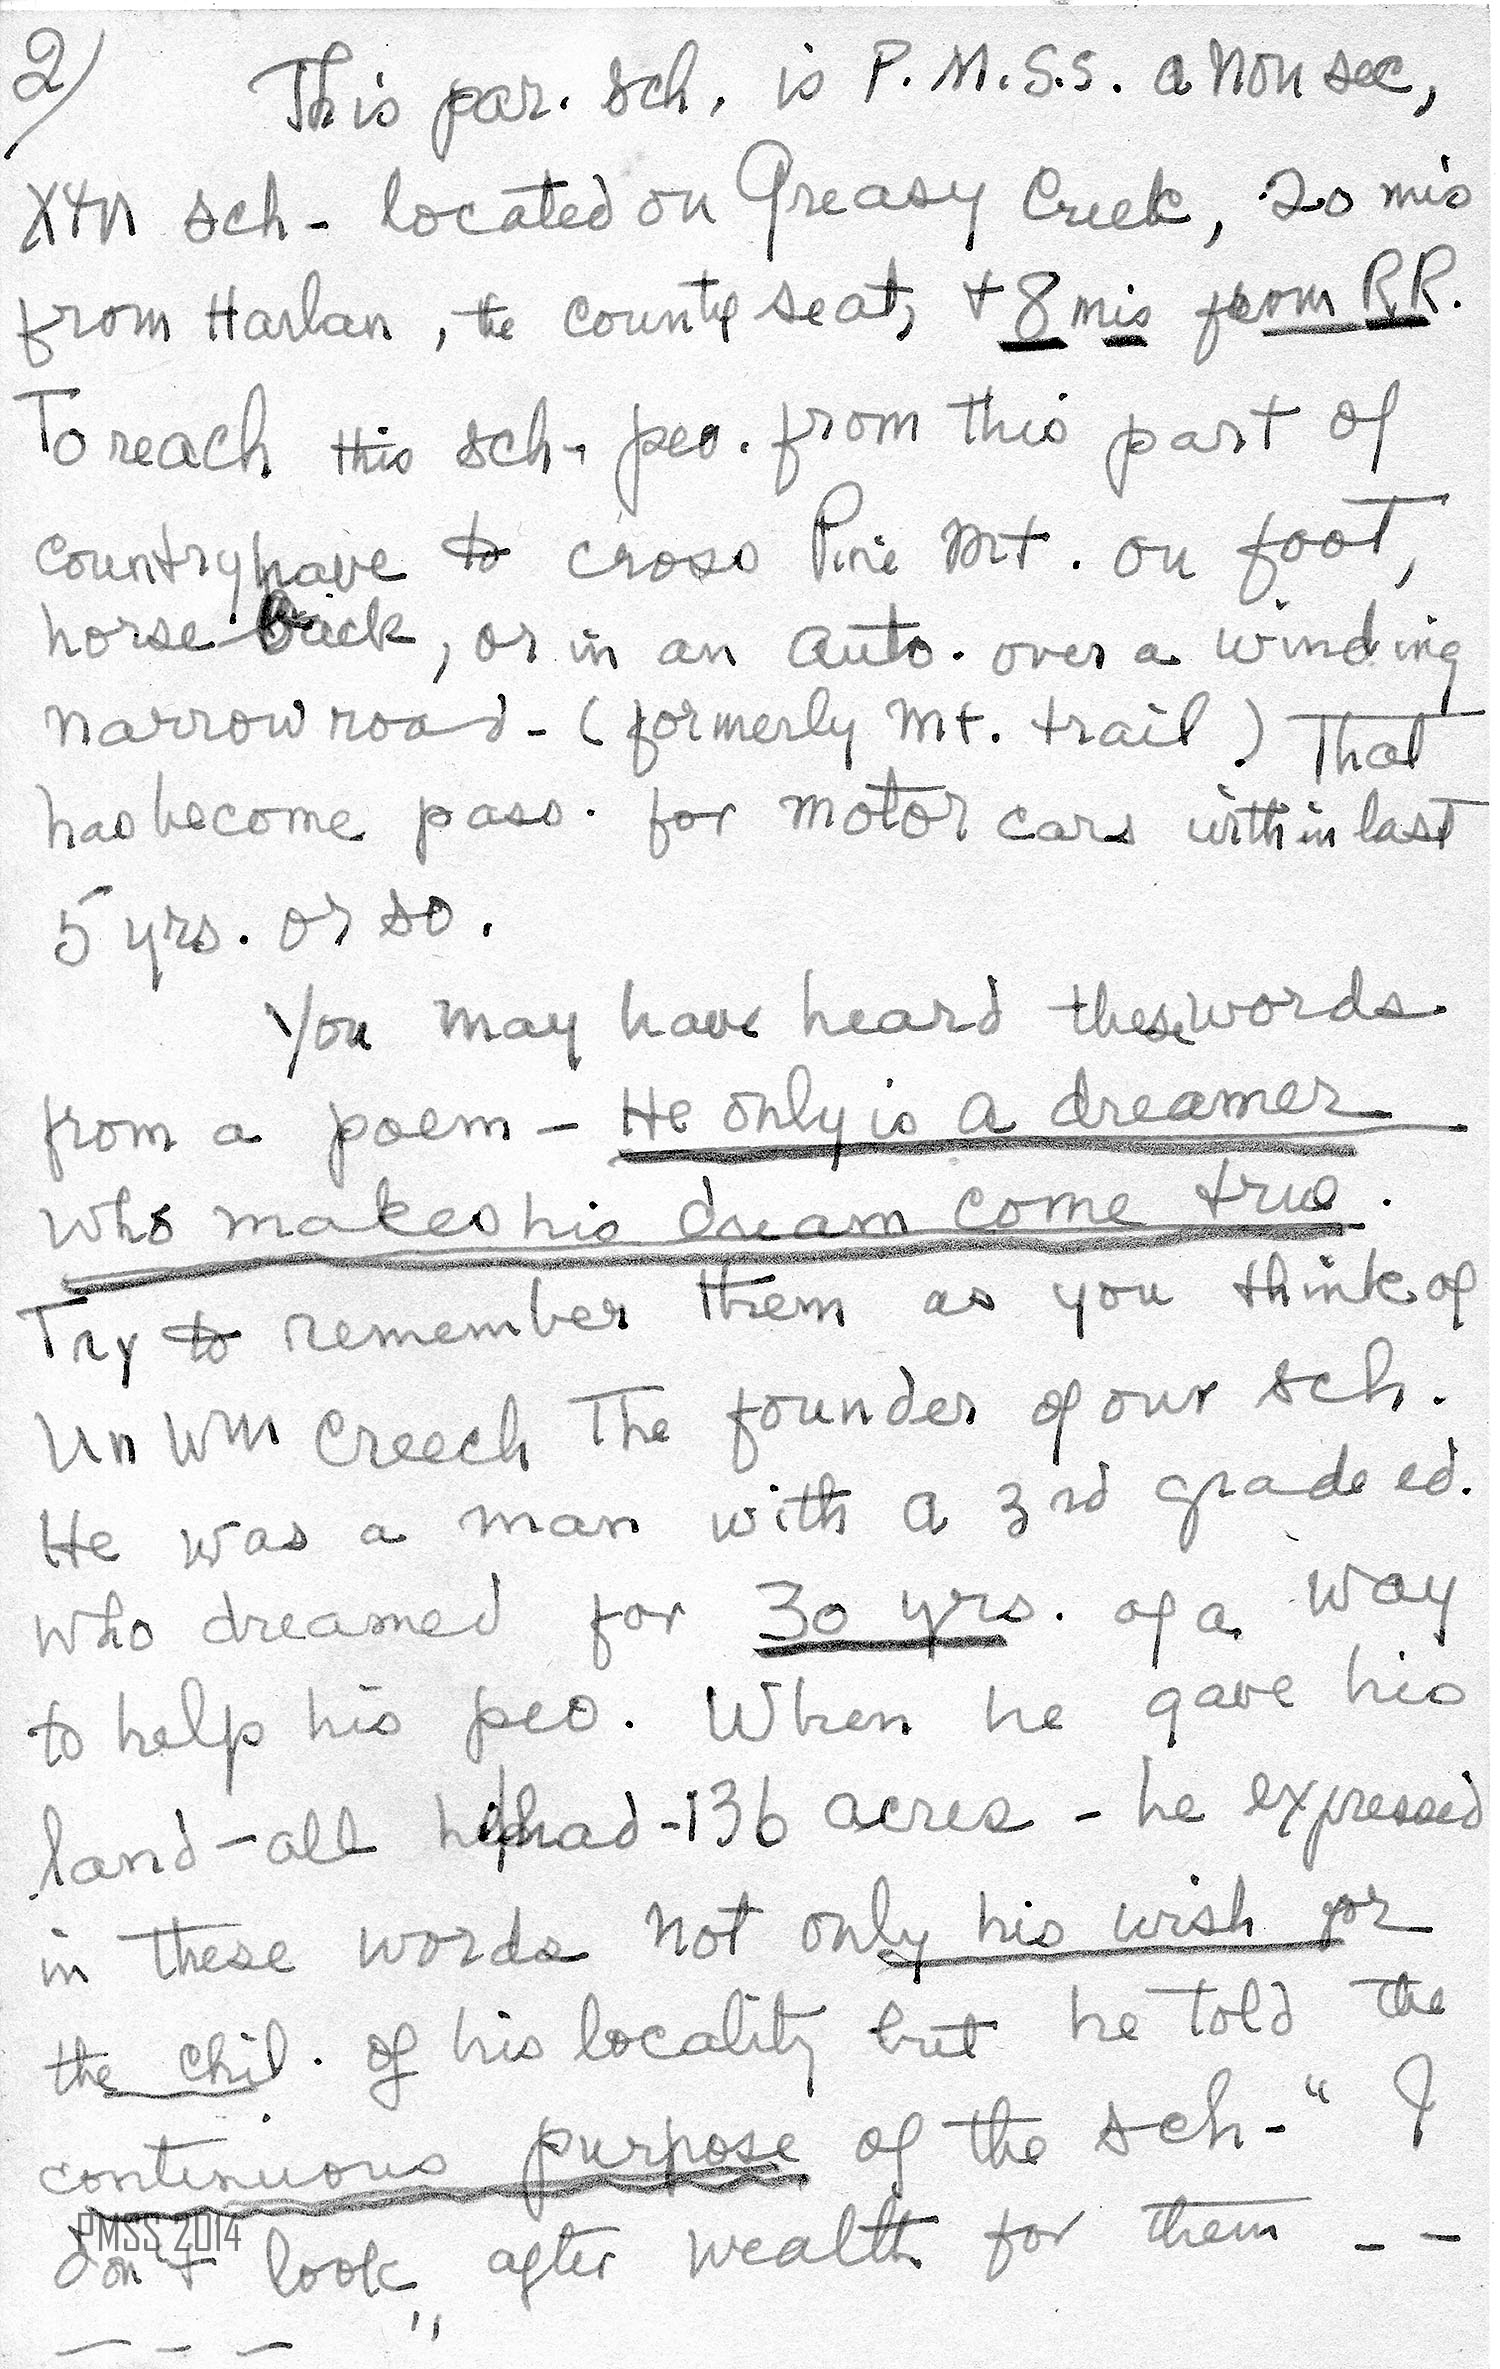 2/ This par. sch. is P.M.S.S. a non sec,
Xtn sch - located on Greasy Creek, 20 mis
from Harlan, the county seat, + 8 mis from RR.
To reach this sch - peo. from this part of
country have to cross Pine Mt. on foot,
horse back, or in an auto. over a winding
narrow road - (formerly Mt. trail) That
has become pass. for motor cars within last
5 yrs. or so.
You may have heard these words
from a poem - He only is a dreamer
who makes his dream come true.
Try to remember them as you think of
Un Wm Creech The founder of our sch.
He was a man with a 3rd grade ed.
who dreamed for 30 yrs. of a way
to help his peo. When he gave his
land - all he had - 136 acres - he expressed
in these words not only his wish for
the chil. of his locality but he told the
continuous purpose of the sch - " I
don't look after wealth for them - -
- - - "
PMSS 2014